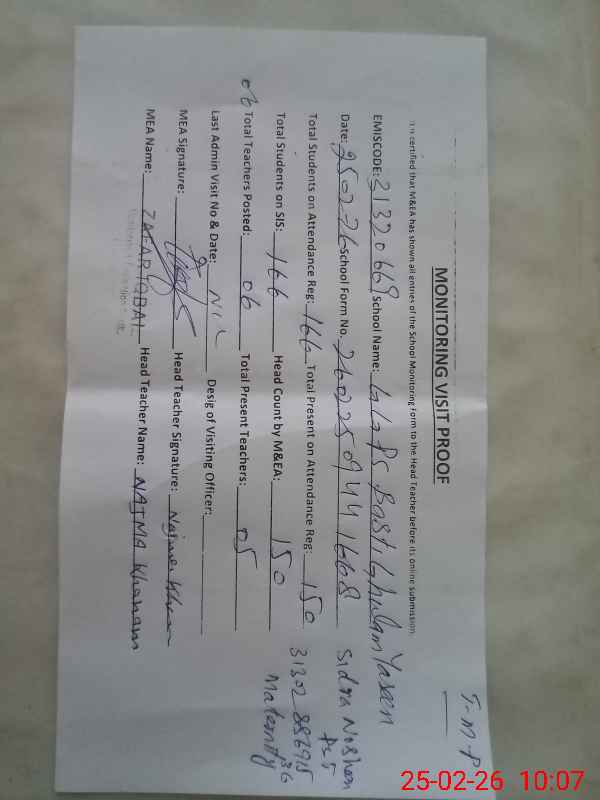 T-M-P
MONITORING VISIT PROOF
It is certified that M&EA has shown all entries of the School Monitoring Form to the Head Teacher before its online submission.
EMISCODE: 31320669 School Name: GGPS Basti Ghulam Yaseen
Date: 250226 School Form No. 260225094441668
Total Students on Attendance Reg: 166 Total Present on Attendance Reg: 150
Total Students on SIS: 166 Head Count by M&EA: 150
06 Total Teachers Posted: 06 Total Present Teachers: 05
Last Admin Visit No & Date: NIL Desig of Visiting Officer:
MEA Signature: Head Teacher Signature: Najma Khanam
MEA Name: ZAFAR IQBAL Head Teacher Name: NAJMA Khanam
Sidra Noshen
PST
Maternity
25-02-26 10:07